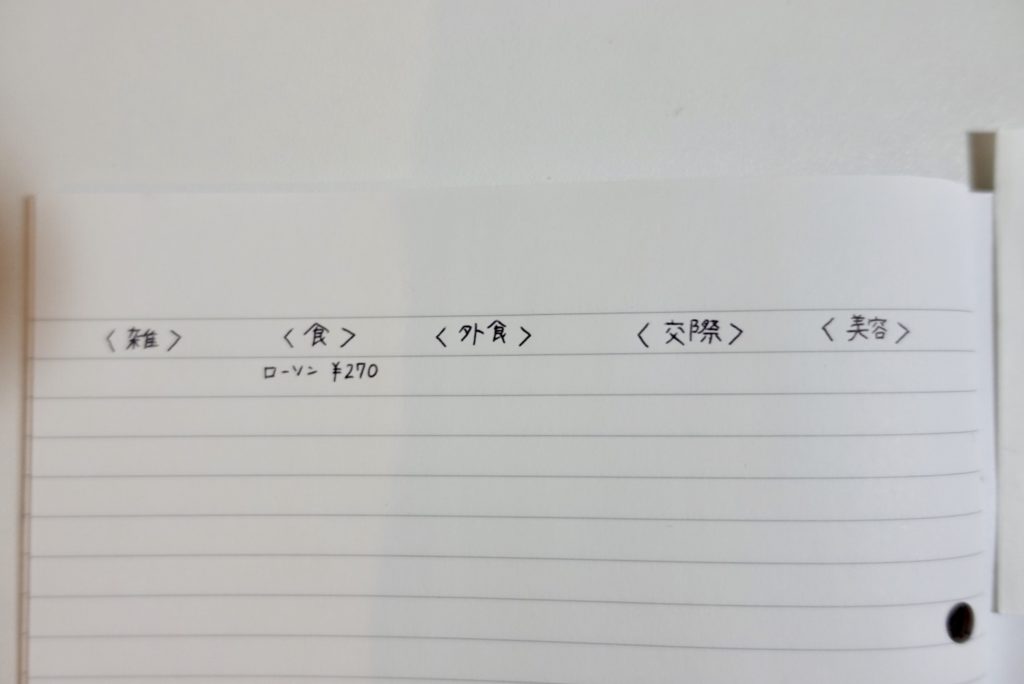 〈雑〉 〈食〉 〈外食〉 〈交際〉 〈美容〉
ローソン ¥270